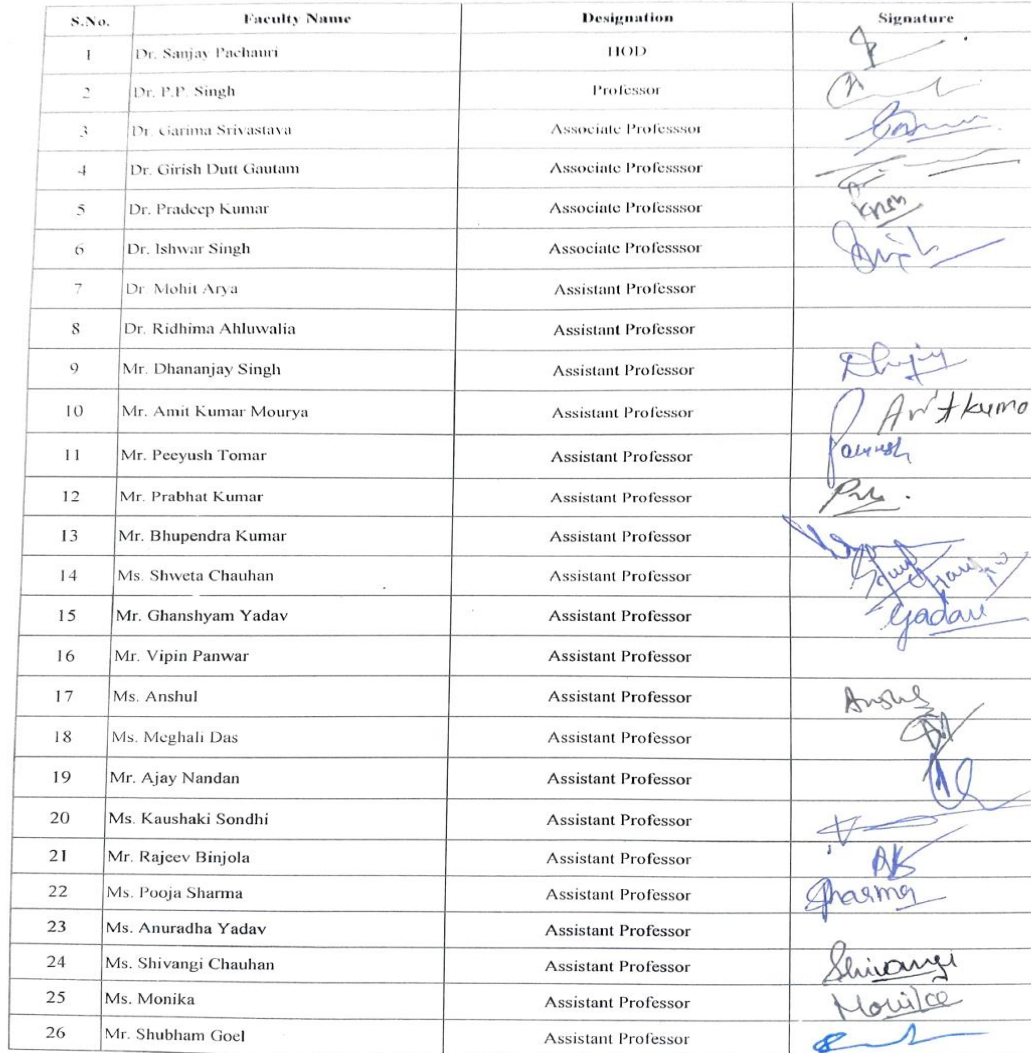 S.No. Faculty Name Designation Signature
1 Dr. Sanjay Pachauri HOD
2 Dr. P.P. Singh Professor
3 Dr. Garima Srivastava Associate Professsor
4 Dr. Girish Dutt Gautam Associate Professsor
5 Dr. Pradeep Kumar Associate Professsor
6 Dr. Ishwar Singh Associate Professsor
7 Dr. Mohit Arya Assistant Professor
8 Dr. Ridhima Ahluwalia Assistant Professor
9 Mr. Dhananjay Singh Assistant Professor
10 Mr. Amit Kumar Mourya Assistant Professor
11 Mr. Peeyush Tomar Assistant Professor
12 Mr. Prabhat Kumar Assistant Professor
13 Mr. Bhupendra Kumar Assistant Professor
14 Ms. Shweta Chauhan Assistant Professor
15 Mr. Ghanshyam Yadav Assistant Professor Yadav
16 Mr. Vipin Panwar Assistant Professor
17 Ms. Anshul Assistant Professor Anshul
18 Ms. Meghali Das Assistant Professor
19 Mr. Ajay Nandan Assistant Professor
20 Ms. Kaushaki Sondhi Assistant Professor
21 Mr. Rajeev Binjola Assistant Professor
22 Ms. Pooja Sharma Assistant Professor Sharma
23 Ms. Anuradha Yadav Assistant Professor
24 Ms. Shivangi Chauhan Assistant Professor Shivangi
25 Ms. Monika Assistant Professor Monika
26 Mr. Shubham Goel Assistant Professor